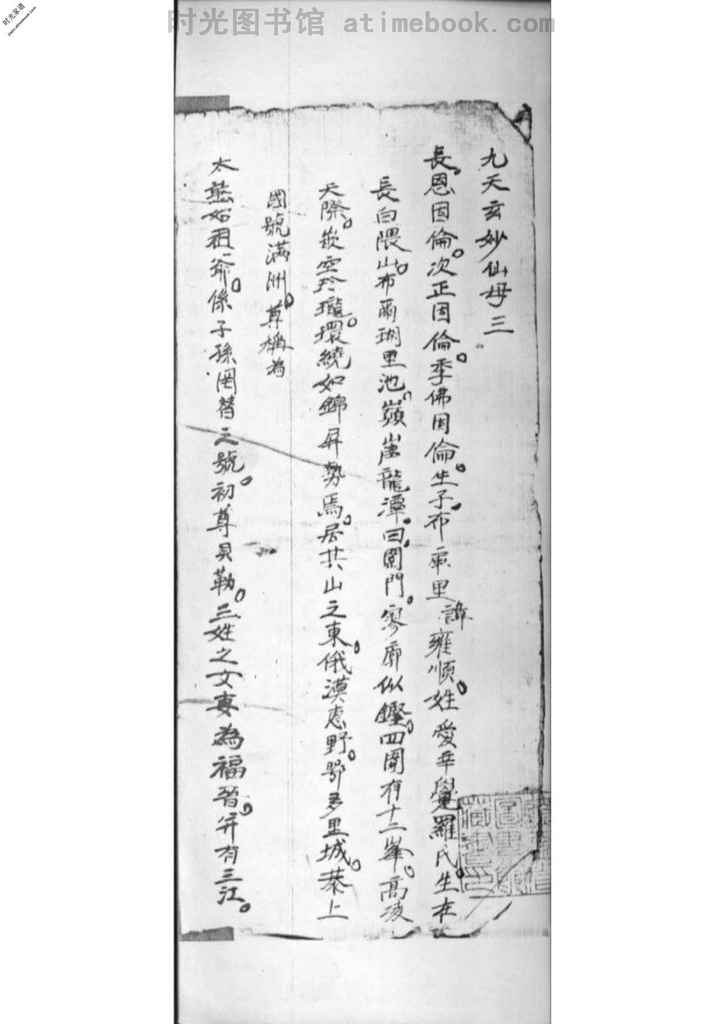 时光图书馆 atimebook.com
时光家谱
www.atimebook.com
九天玄妙仙母三
長恩因倫。次正因倫。季佛因倫。生子布庫里諱雍順。姓愛辛覺羅氏。生在
長白隈山。布爾瑚里池。巔崖龍潭。曰圍門。寥廓似鏗。四圍有十二峯。高凌
天際。嵌空玲瓏。環繞如錦屏勢焉。居共山之東。俄漠惠野。鄂多里城。恭上
國號滿洲。尊稱為
太熊始祖爺。係子孫罔替之號。初尊貝勒。三姓之女妻為福晉。并有三江。